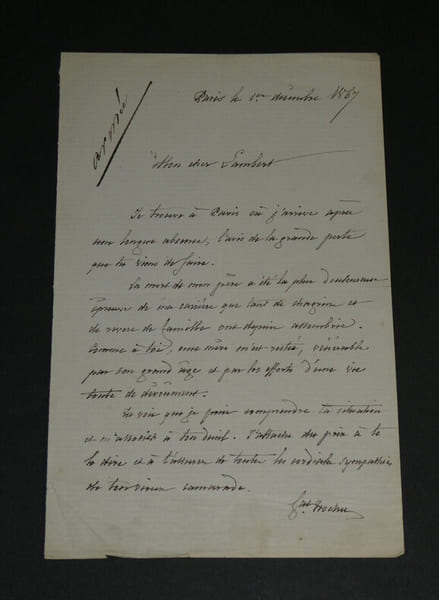 armée
Paris le 1er décembre 1867
Mon cher Lambert
Je trouve à Paris où j'arrive après
une longue absence, l'avis de la grande perte
que tu viens de faire.
La mort de mon père a été la plus douloureuse
épreuve de ma carrière que tant de chagrins et
de revers de famille ont depuis assombrie.
Comme à toi, une mère m'est restée, vénérable
par son grand âge et par les efforts d'une vie
toute de dévouement.
Tu vois que je puis comprendre ta situation
et m'associer à ton deuil. J'attache du prix à te
le dire et à t'assurer de toutes les cordiales sympathies
de ton vieux camarade.
Gal Trochu